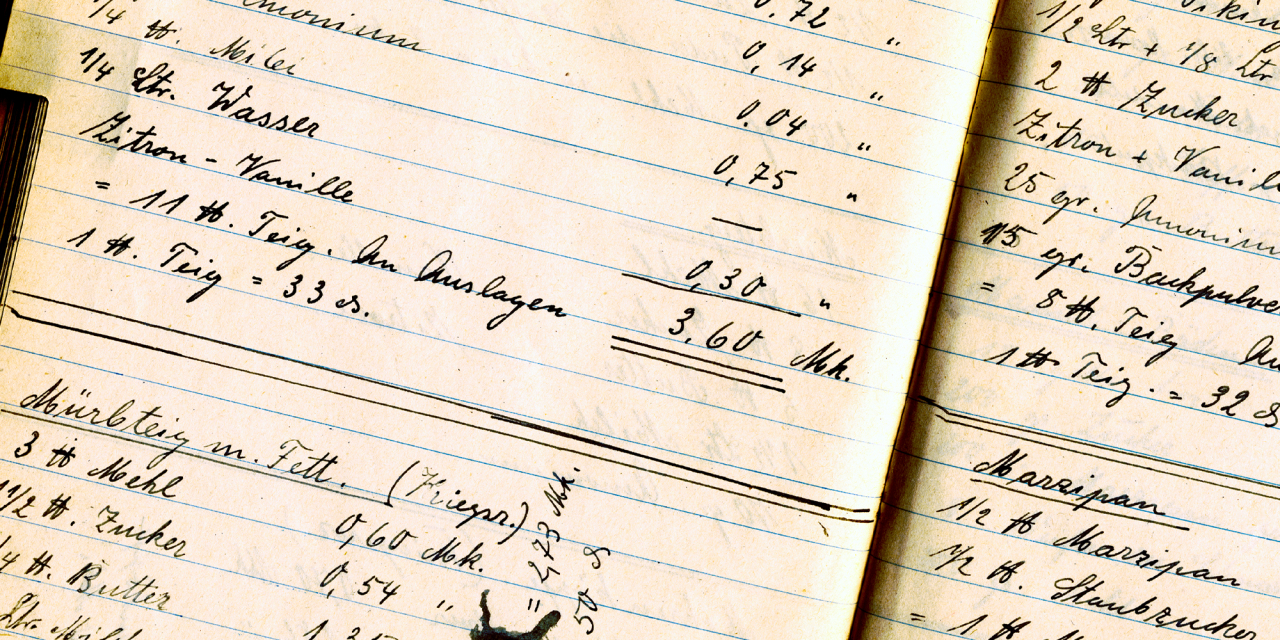 0,72 "
1/4 ℔. Milei 0,14 "
1/4 Ltr. Wasser 0.04 "
Zitron - Vanille 0,75 "
= 11 ℔. Teig. An Auslagen 0,30 "
1 ℔. Teig = 33 ₰. 3.60 Mk.
Mürbteig m. Fett. (Kriegsr.)
3 ℔ Mehl 0,60 Mk.
1 1/2 ℔. Zucker 0,54 "
1/4 ℔. Butter
Ltr. Milch
= 2,73 Mk.
50 ₰
1/2 Ltr + 1/8 Ltr
2 ℔ Zucker
Zitron + Vanille
25 gr. Amonium
15 gr. Backpulver
= 8 ℔. Teig
1 ℔ Teig. = 32 ₰
Marzipan
1/2 ℔ Marzipan
1/2 ℔. Staubzucker
= 1 ℔